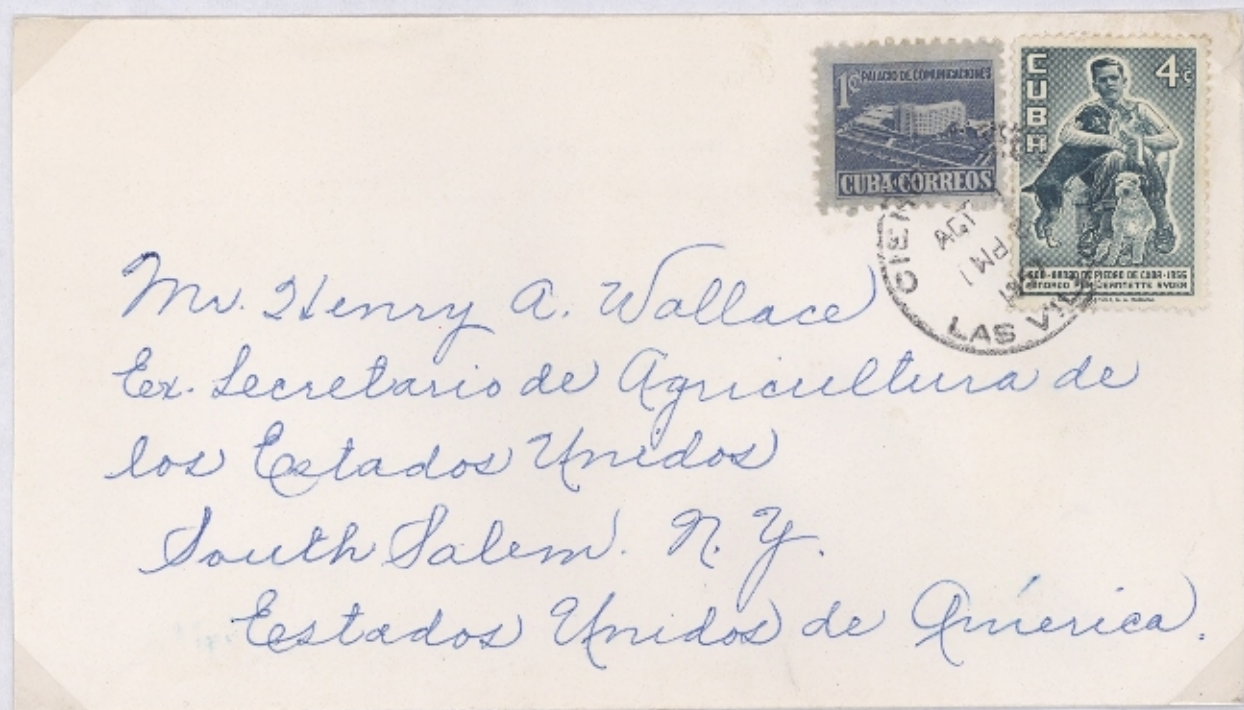 1¢ PALACIO DE COMUNICACIONES
CUBA·CORREOS
CUBA
4¢
AGT
PM 1
LAS
Mr. Henry A. Wallace
Ex. Secretario de Agricultura de
los Estados Unidos
South Salem. N. Y.
Estados Unidos de América.